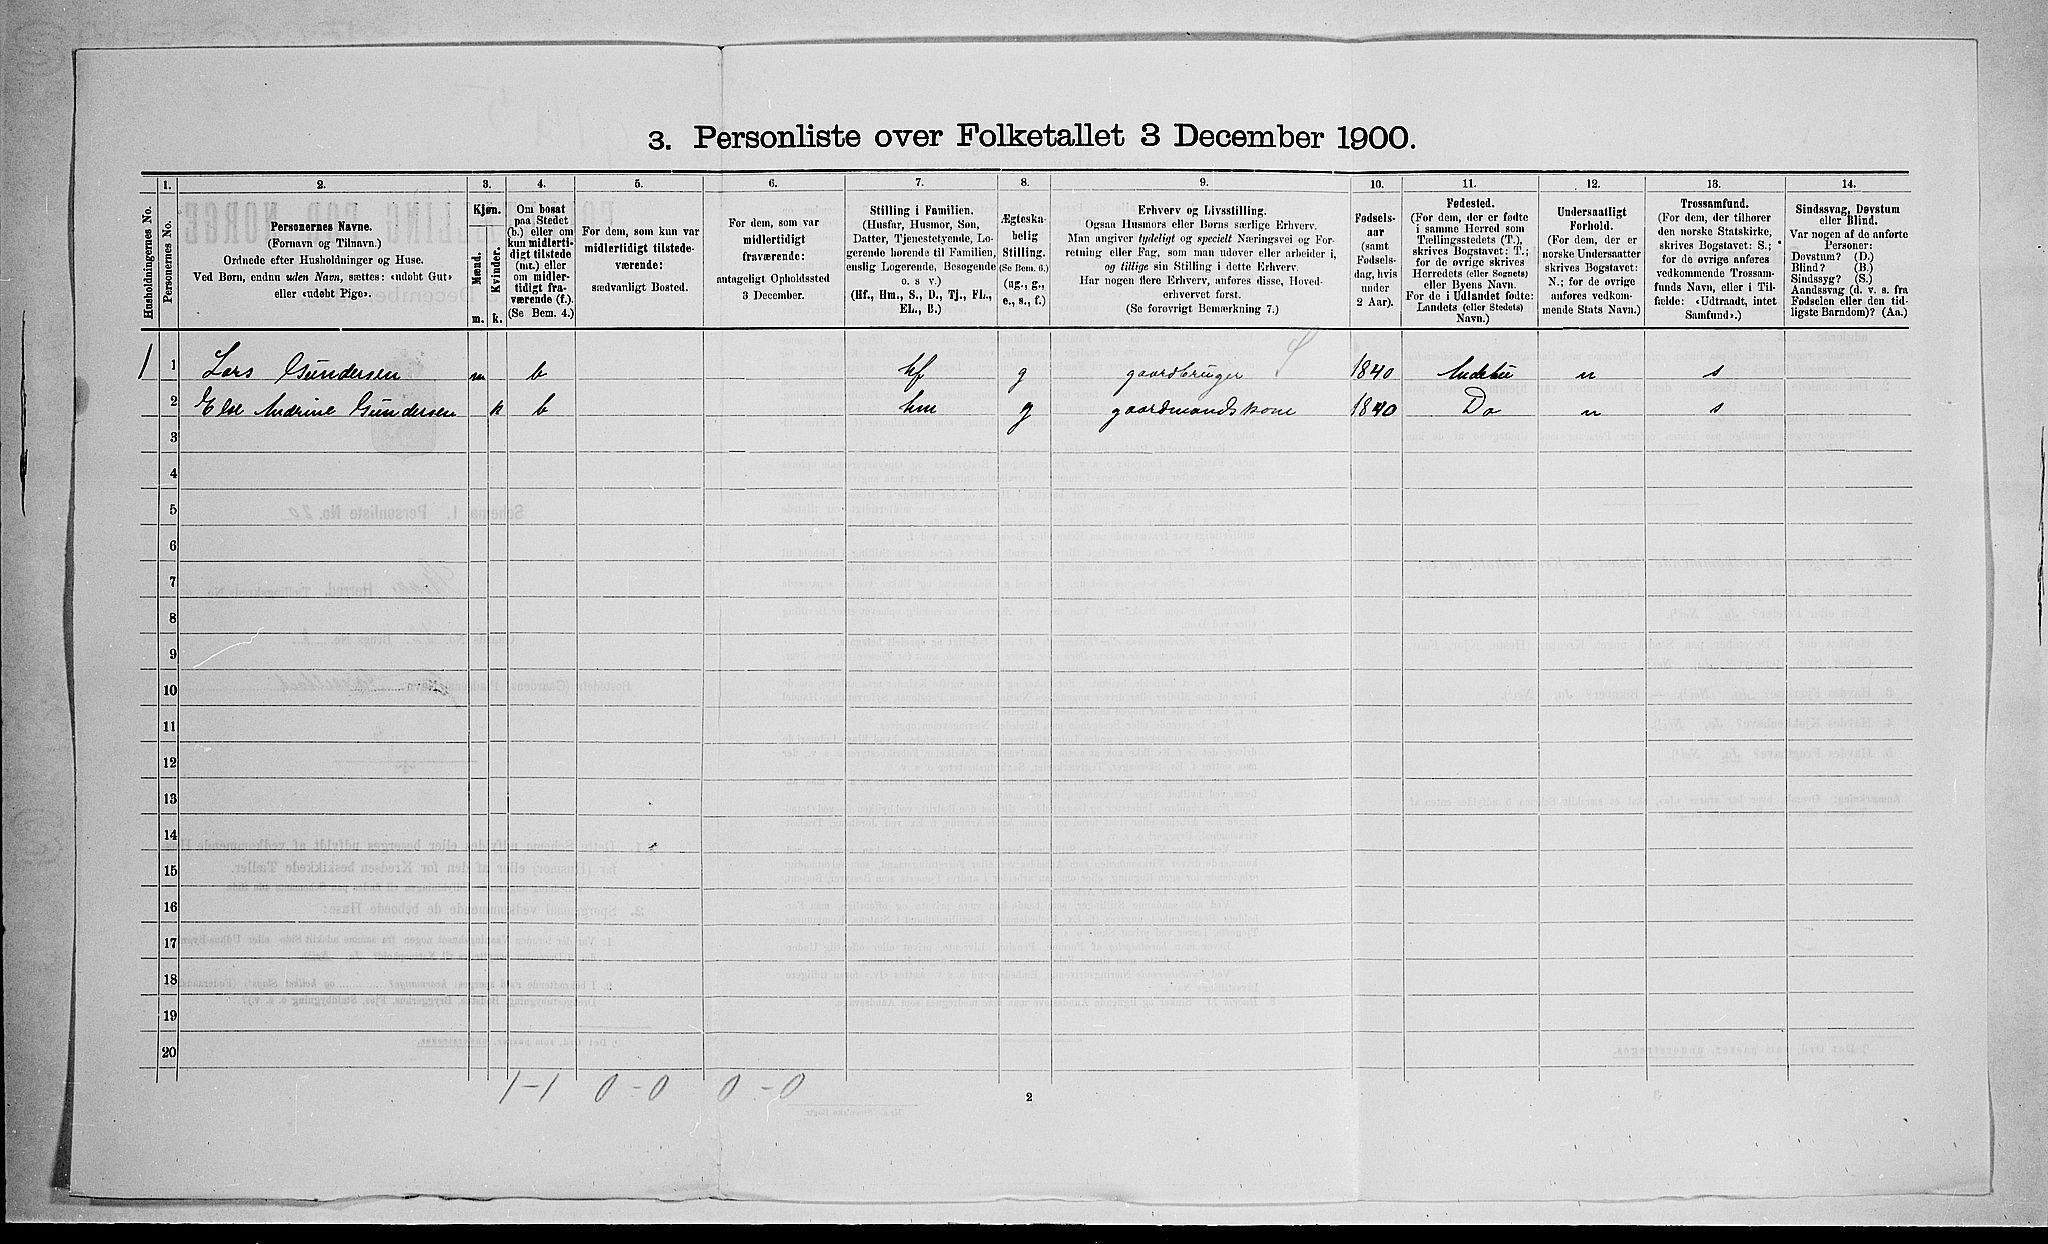 3. Personliste over Folketallet 3 December 1900.
1. 2. 3. 4. 5. 6. 7. 8. 9. 10. 11. 12. 13. 14.
Husholdningernes No.
Personernes No.
Personernes Navne.
(Fornavn og Tilnavn.)
Ordnede efter Husholdninger og Huse.
Ved Børn, endnu uden Navn, sættes: «udøbt Gut»
eller «udøbt Pige».
Kjøn.
Mænd.
Kvinder.
m. k.
Om bosat
paa Stedet
(b.) eller om
kun midlerti-
digt tilstede
(mt.) eller
om midler-
tidigt fra-
værende (f.).
(Se Bem. 4.)
For dem, som kun var
midlertidigt tilstede-
værende:
sædvanligt Bosted.
For dem, som var
midlertidigt
fraværende:
antageligt Opholdssted
3 December.
Stilling i Familien.
(Husfar, Husmor, Søn,
Datter, Tjenestetyende, Lo-
gerende hørende til Familien,
enslig Logerende, Besøgende
o. s v.)
(Hf., Hm., S., D., Tj., FL.,
EL., B.)
Ægteska-
belig
Stilling.
(Se Bem. 6.)
(ug., g.,
e., s., f.)
Erhverv og Livsstilling.
Ogsaa Husmors eller Børns særlige Erhverv.
Man angiver tydeligt og specielt Næringsvei og For-
retning eller Fag, som man udøver eller arbeider i,
og tillige sin Stilling i dette Erhverv.
Har nogen flere Erhverv, anføres disse, Hoved-
erhvervet først.
(Se forøvrigt Bemærkning 7.)
Fødsels-
aar
(samt
Fødsels-
dag, hvis
under
2 Aar).
Fødested.
(For dem, der er fødte
i samme Herred som
Tællingsstedets (T.),
skrives Bogstavet: T.;
for de øvrige skrives
Herredets (eller Sognets)
eller Byens Navn.
For de i Udlandet fødte:
Landets (eller Stedets)
Navn.)
Undersaatligt
Forhold.
(For dem, der er
norske Undersaatter
skrives Bogstavet:
N.; for de øvrige
anføres vedkom-
mende Stats Navn.)
Trossamfund.
(For dem, der tilhører
den norske Statskirke,
skrives Bogstavet: S.;
for de øvrige anføres
vedkommende Trossam-
funds Navn, eller i Til-
fælde: «Udtraadt, intet
Samfund».)
Sindssvag, Døvstum
eller Blind.
Var nogen af de anførte
Personer:
Døvstum? (D.)
Blind? (B.)
Sindssyg? (S.)
Aandssvag (d. v. s. fra
Fødselen eller den tid-
ligste Barndom)? (Aa.)
1 1 Lars Gundersen m b hf g gaardbruger 1840 Andebu n s
2 Else Andrine Gundersen k b hm g gaardmandskone 1840 Do n s
3
4
5
6
7
8
9
10
11
12
13
14
15
16
17
18
19
20
1-1 0-0 0-0
2